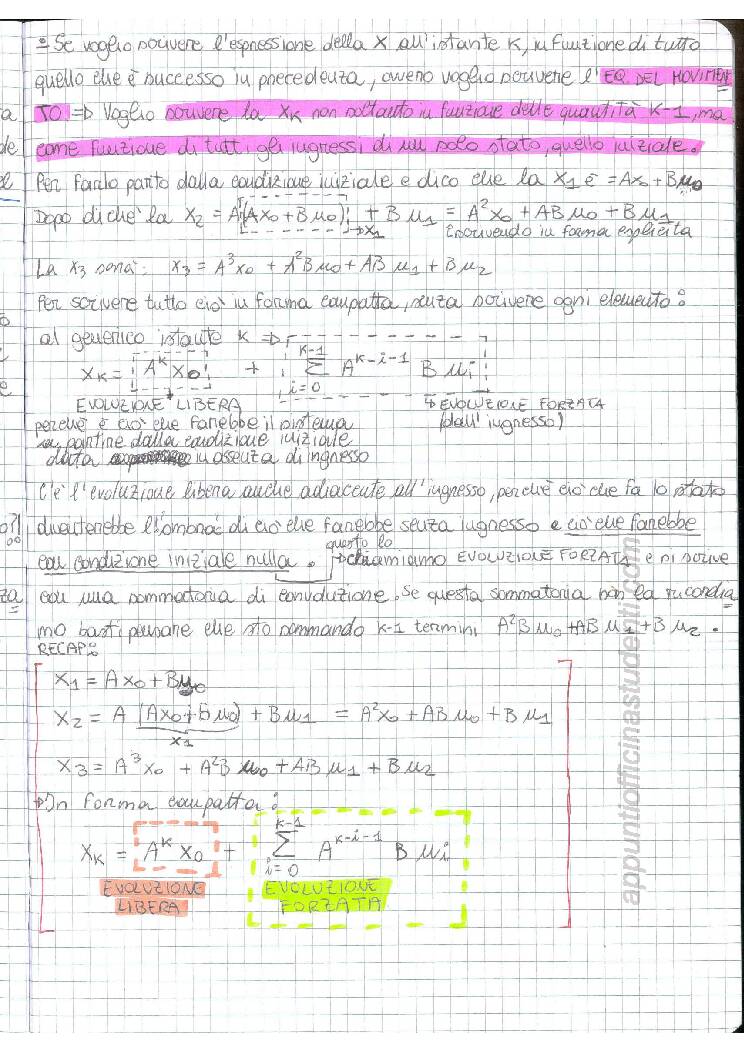 = Se voglio scrivere l'espressione della X all'istante K, in funzione di tutto
quello che è successo in precedenza, ovvero voglio scrivere l'EQ. DEL MOVIMEN
TO. => Voglio scrivere la XK non soltanto in funzione delle quantità K-1, ma
come funzione di tutti gli ingressi di un solo stato, quello iniziale.
Per farlo parto dalla condizione iniziale e dico che la X1 è = Ax0 + Bu0
Dopo di che la X2 = A(Ax0 + Bu0) + B u1 = A²x0 + AB u0 + B u1
→ x1 Escrivendo in forma esplicita
La x3 sarà: x3 = A³x0 + A²B u0 + AB u1 + B u2
Per scrivere tutto ciò in forma compatta, senza scrivere ogni elemento:
al generico istante K =>
XK = A^K X0 + Σ_{i=0}^{K-1} A^{K-i-1} B ui
EVOLUZIONE LIBERA ↳ EVOLUZIONE FORZATA
perché è ciò che farebbe il sistema (dall'ingresso)
a partire dalla condizione iniziale
data in assenza di ingresso
C'è l'evoluzione libera anche adiacente all'ingresso, perché ciò che fa lo stato
diventerebbe l'ombra di ciò che farebbe senza ingresso e ciò che farebbe
questo lo
con condizione iniziale nulla. → chiamiamo EVOLUZIONE FORZATA e si scrive
con una sommatoria di convoluzione. Se questa sommatoria non la ricordia
mo basti pensare che sto sommando K-1 termini A²B u0 + AB u1 + B u2.
RECAP:
X1 = Ax0 + Bu0
X2 = A (Ax0 + B u0) + B u1 = A²x0 + AB u0 + B u1
x1
X3 = A³x0 + A²B u0 + AB u1 + B u2
→ In forma compatta:
XK = A^K X0 + Σ_{i=0}^{K-1} A^{K-i-1} B ui
EVOLUZIONE LIBERA EVOLUZIONE FORZATA
appuntiofficinastudenti.com